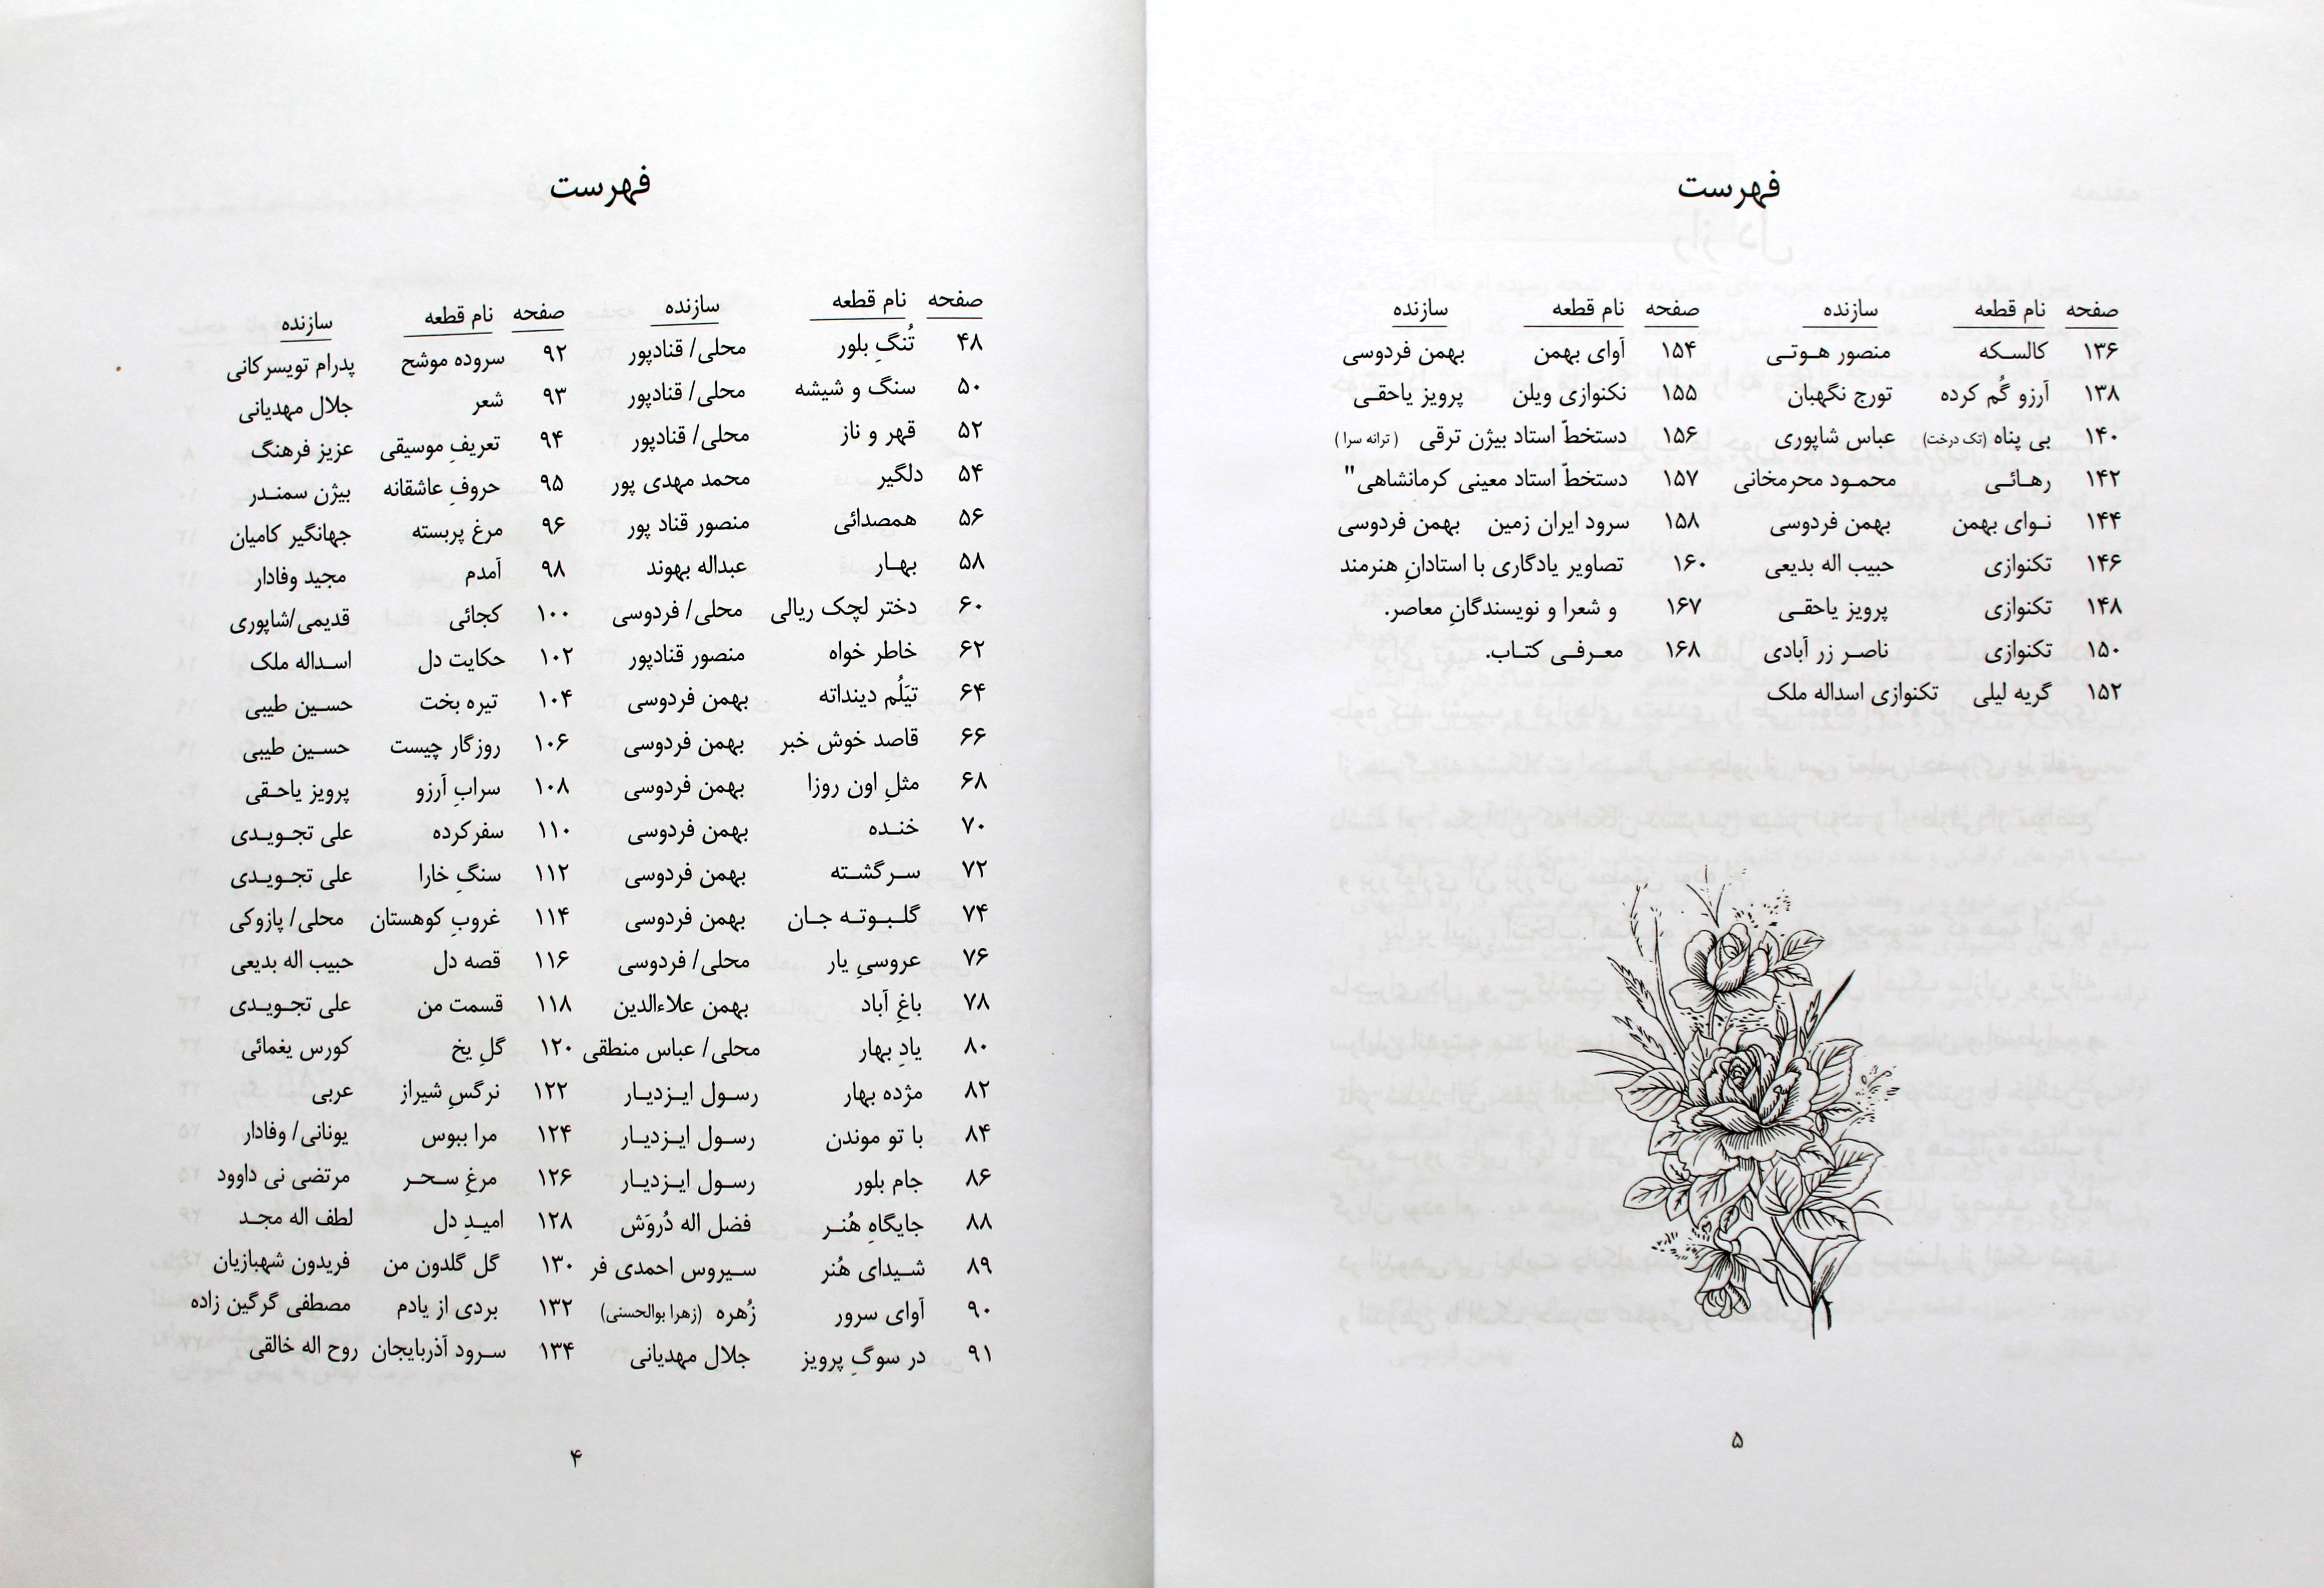 فهرست
صفحه نام قطعه سازنده
۴۸ تُنگِ بلور محلی/ قنادپور
۵۰ سنگ و شیشه محلی/ قنادپور
۵۲ قهر و ناز محلی/ قنادپور
۵۴ دلگیر محمد مهدی پور
۵۶ همصدائی منصور قناد پور
۵۸ بهـار عبداله بهوند
۶۰ دختر لچک ریالی محلی/ فردوسی
۶۲ خاطر خواه منصور قنادپور
۶۴ تیَلُم دینداته بهمن فردوسی
۶۶ قاصد خوش خبر بهمن فردوسی
۶۸ مثلِ اون روزا بهمن فردوسی
۷۰ خنـده بهمن فردوسی
۷۲ سـرگشـته بهمن فردوسی
۷۴ گلـبـوتـه جـان بهمن فردوسی
۷۶ عروسیِ یار محلی/ فردوسی
۷۸ باغِ آباد بهمن علاءالدین
۸۰ یادِ بهار محلی/ عباس منطقی
۸۲ مژده بهار رسـول ایـزدیـار
۸۴ با تو موندن رسـول ایـزدیـار
۸۶ جام بلور رسـول ایـزدیـار
۸۸ جایگاهِ هُنـر فضل اله دُروَش
۸۹ شـیدای هُنر سـیروس احمدی فر
۹۰ آوای سرور زُهره (زهرا بوالحسنی)
۹۱ در سوگِ پرویز جلال مهدیانی
صفحه نام قطعه سازنده
۹۲ سروده موشح پدرام تویسرکانی
۹۳ شعر جلال مهدیانی
۹۴ تعریفِ موسیقی عزیز فرهنگ
۹۵ حروفِ عاشقانه بیژن سمنـدر
۹۶ مرغ پربسته جهانگیر کامیان
۹۸ آمدم مجید وفادار
۱۰۰ کجائی قدیمی/شاپوری
۱۰۲ حکایت دل اسـداله ملک
۱۰۴ تیره بخت حسـین طیبی
۱۰۶ روزگار چیست حسـین طیبی
۱۰۸ سرابِ آرزو پرویز یاحـقی
۱۱۰ سفرکرده علی تجـویـدی
۱۱۲ سنگِ خارا علی تجـویـدی
۱۱۴ غروبِ کوهستان محلی/ پازوکی
۱۱۶ قصه دل حبیب اله بدیعی
۱۱۸ قسمت من علی تجـویـدی
۱۲۰ گلِ یخ کورس یغمائی
۱۲۲ نرگسِ شیراز عربی
۱۲۴ مرا ببوس یونانی/ وفادار
۱۲۶ مرغِ سـحـر مرتضی نی داوود
۱۲۸ امیـدِ دل لطف اله مجـد
۱۳۰ گل گلدون من فریدون شهبازیان
۱۳۲ بردی از یادم مصطفی گرگین زاده
۱۳۴ سـرود آذربایجان روح اله خالقی
۴
فهرست
صفحه نام قطعه سازنده
۱۳۶ کالسـکه منصور هـوتـی
۱۳۸ آرزو گُم کرده تورج نگهبان
۱۴۰ بی پناه (تک درخت) عباس شاپوری
۱۴۲ رهـائـی محمـود محرمخانی
۱۴۴ نـوای بهمن بهمن فردوسی
۱۴۶ تکنوازی حبیب اله بدیعی
۱۴۸ تکنوازی پرویز یاحقـی
۱۵۰ تکنوازی ناصـر زر آبادی
۱۵۲ گریه لیلی تکنوازی اسداله ملک
صفحه نام قطعه سازنده
۱۵۴ آوای بهمن بهمن فردوسی
۱۵۵ تکنوازی ویلن پرویز یاحقـی
۱۵۶ دستخطّ استاد بیژن ترقی (ترانه سرا)
۱۵۷ دستخطّ استاد معینی کرمانشاهی"
۱۵۸ سرود ایران زمین بهمن فردوسی
۱۶۰ تصاویر یادگاری با استادانِ هنرمند
۱۶۷ و شعرا و نویسندگانِ معاصر.
۱۶۸ معـرفـی کتـاب.
۵